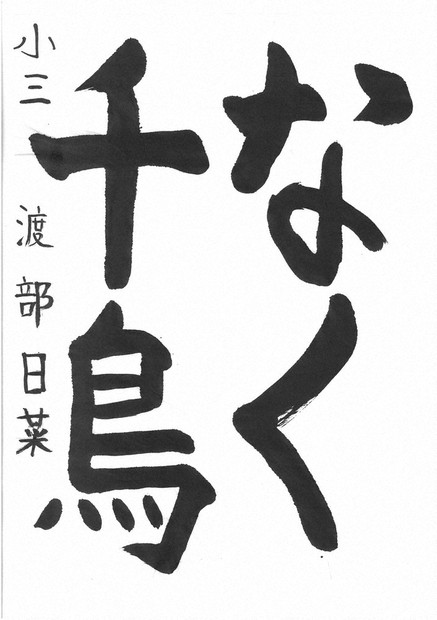 なく
千鳥
小三 渡部日菜